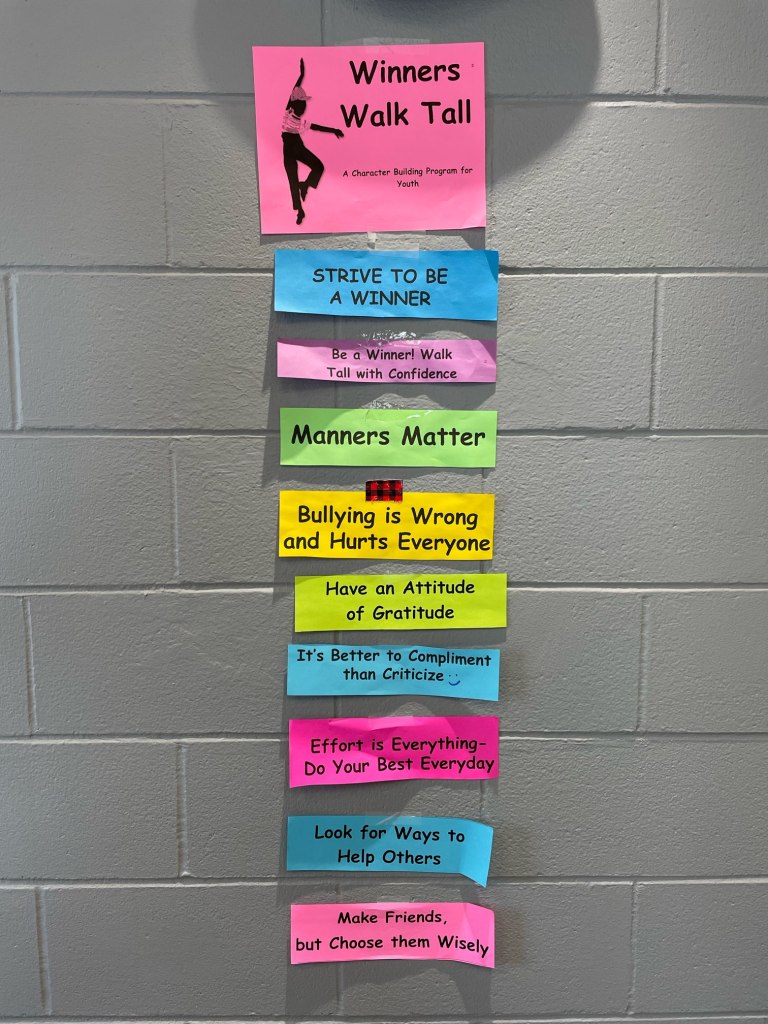 Winners
Walk Tall
A Character Building Program for
Youth
STRIVE TO BE
A WINNER
Be a Winner! Walk
Tall with Confidence
Manners Matter
Bullying is Wrong
and Hurts Everyone
Have an Attitude
of Gratitude
It's Better to Compliment
than Criticize
Effort is Everything-
Do Your Best Everyday
Look for Ways to
Help Others
Make Friends,
but Choose them Wisely